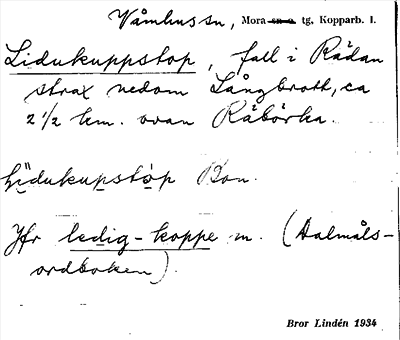 Våmhus sn, Mora sn o. tg, Kopparb. l.
Lidukuppstop, fall i Rädan
strax nedom Långbroth, ca
2 1/2 km. ovan Räbörka.
Lidukupstop Bon.
Jfr ledig-koppe m. (Dalmåls-
ordboken).
Bror Lindén 1934